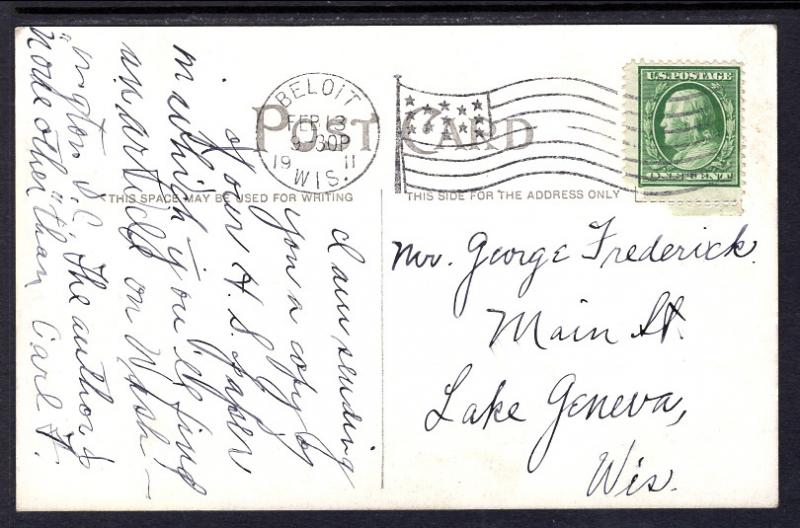 BELOIT
FEB 13
9 30P
19 11
WIS.
U.S. POSTAGE
ONE CENT
POST CARD
THIS SPACE MAY BE USED FOR WRITING
THIS SIDE FOR THE ADDRESS ONLY
I am sending
you a copy by
of our H. S. paper
in which you'll find
an article on Wash-
ington D.C. The author is
"none other" than Carl F.
Mr. George Frederick
Main St.
Lake Geneva,
Wis.